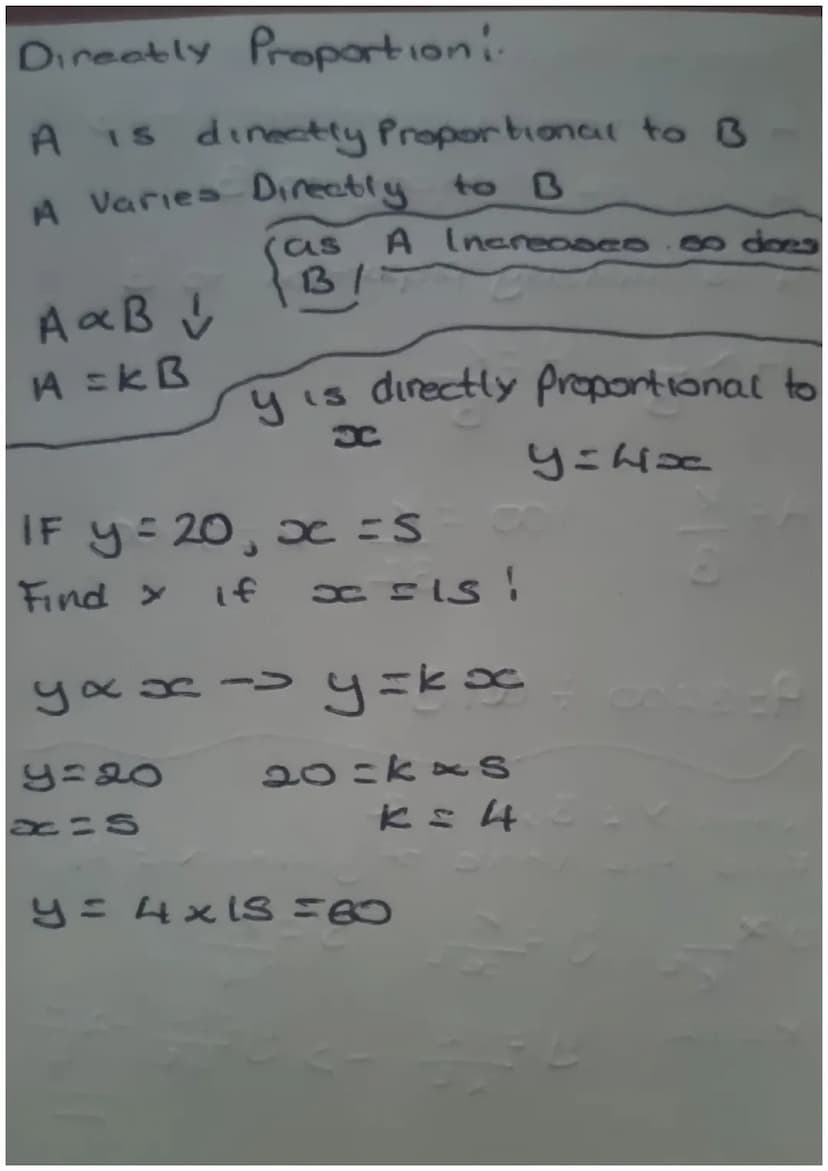 Directly Proportion:
A is directly Proportional to B
A Varies Directly to B
(as A Increases so does
B)
A ∝ B ↓
A = kB
y is directly proportional to
x
y = 4x
IF y = 20, x = 5
Find y if x = 15!
y ∝ x -> y = kx
y = 20 20 = k × 5
x = 5 k = 4
y = 4 × 15 = 60